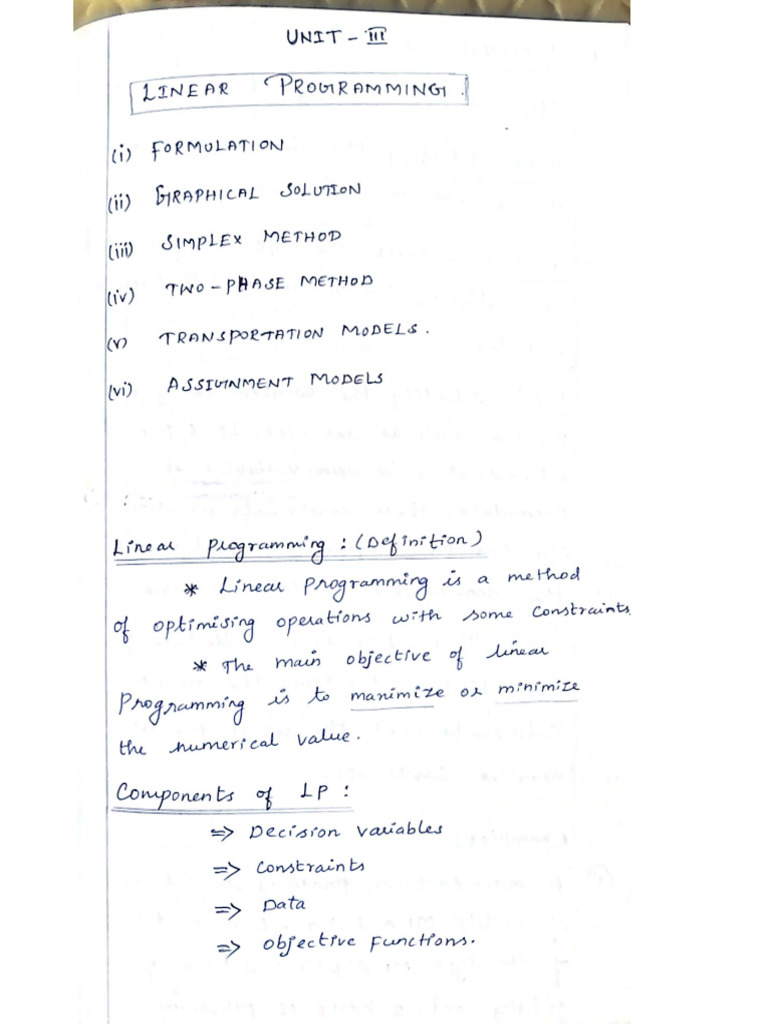 UNIT - III
LINEAR PROGRAMMING.
(i) FORMULATION
(ii) GRAPHICAL SOLUTION
(iii) SIMPLEX METHOD
(iv) TWO-PHASE METHOD
(v) TRANSPORTATION MODELS.
(vi) ASSIGNMENT MODELS
Linear programming : (Definition)
* Linear programming is a method
of optimising operations with some constraints
* The main objective of linear
Programming is to maximize or minimize
the numerical value.
Components of LP :
=> Decision variables
=> Constraints
=> Data
=> Objective Functions.